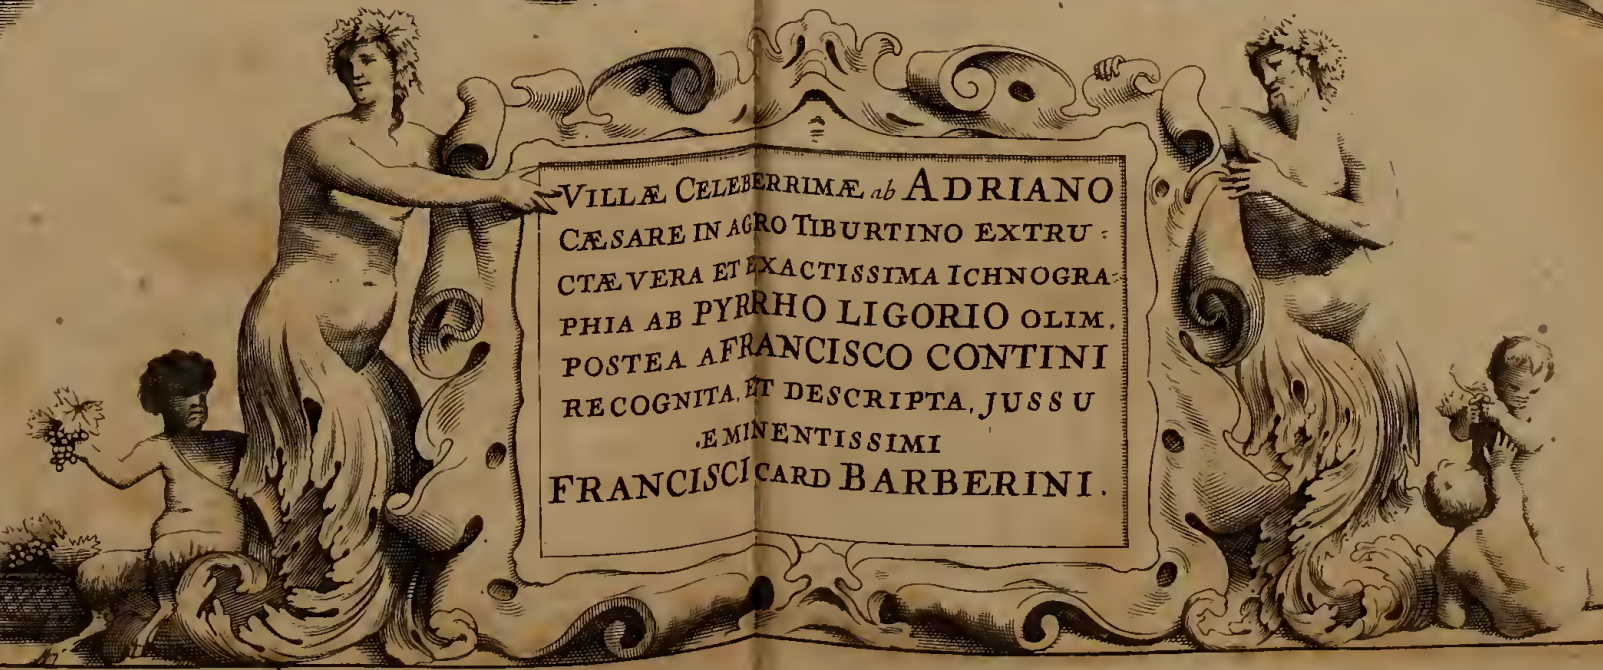 VILLÆ CELEBERRIMÆ ab ADRIANO
CÆSARE IN AGRO TIBURTINO EXTRU:
CTÆ VERA ET EXACTISSIMA ICHNOGRA:
PHIA AB PYRRHO LIGORIO OLIM.
POSTEA A FRANCISCO CONTINI
RECOGNITA, ET DESCRIPTA, JUSSU
.EMINENTISSIMI
FRANCISCI CARD BARBERINI.